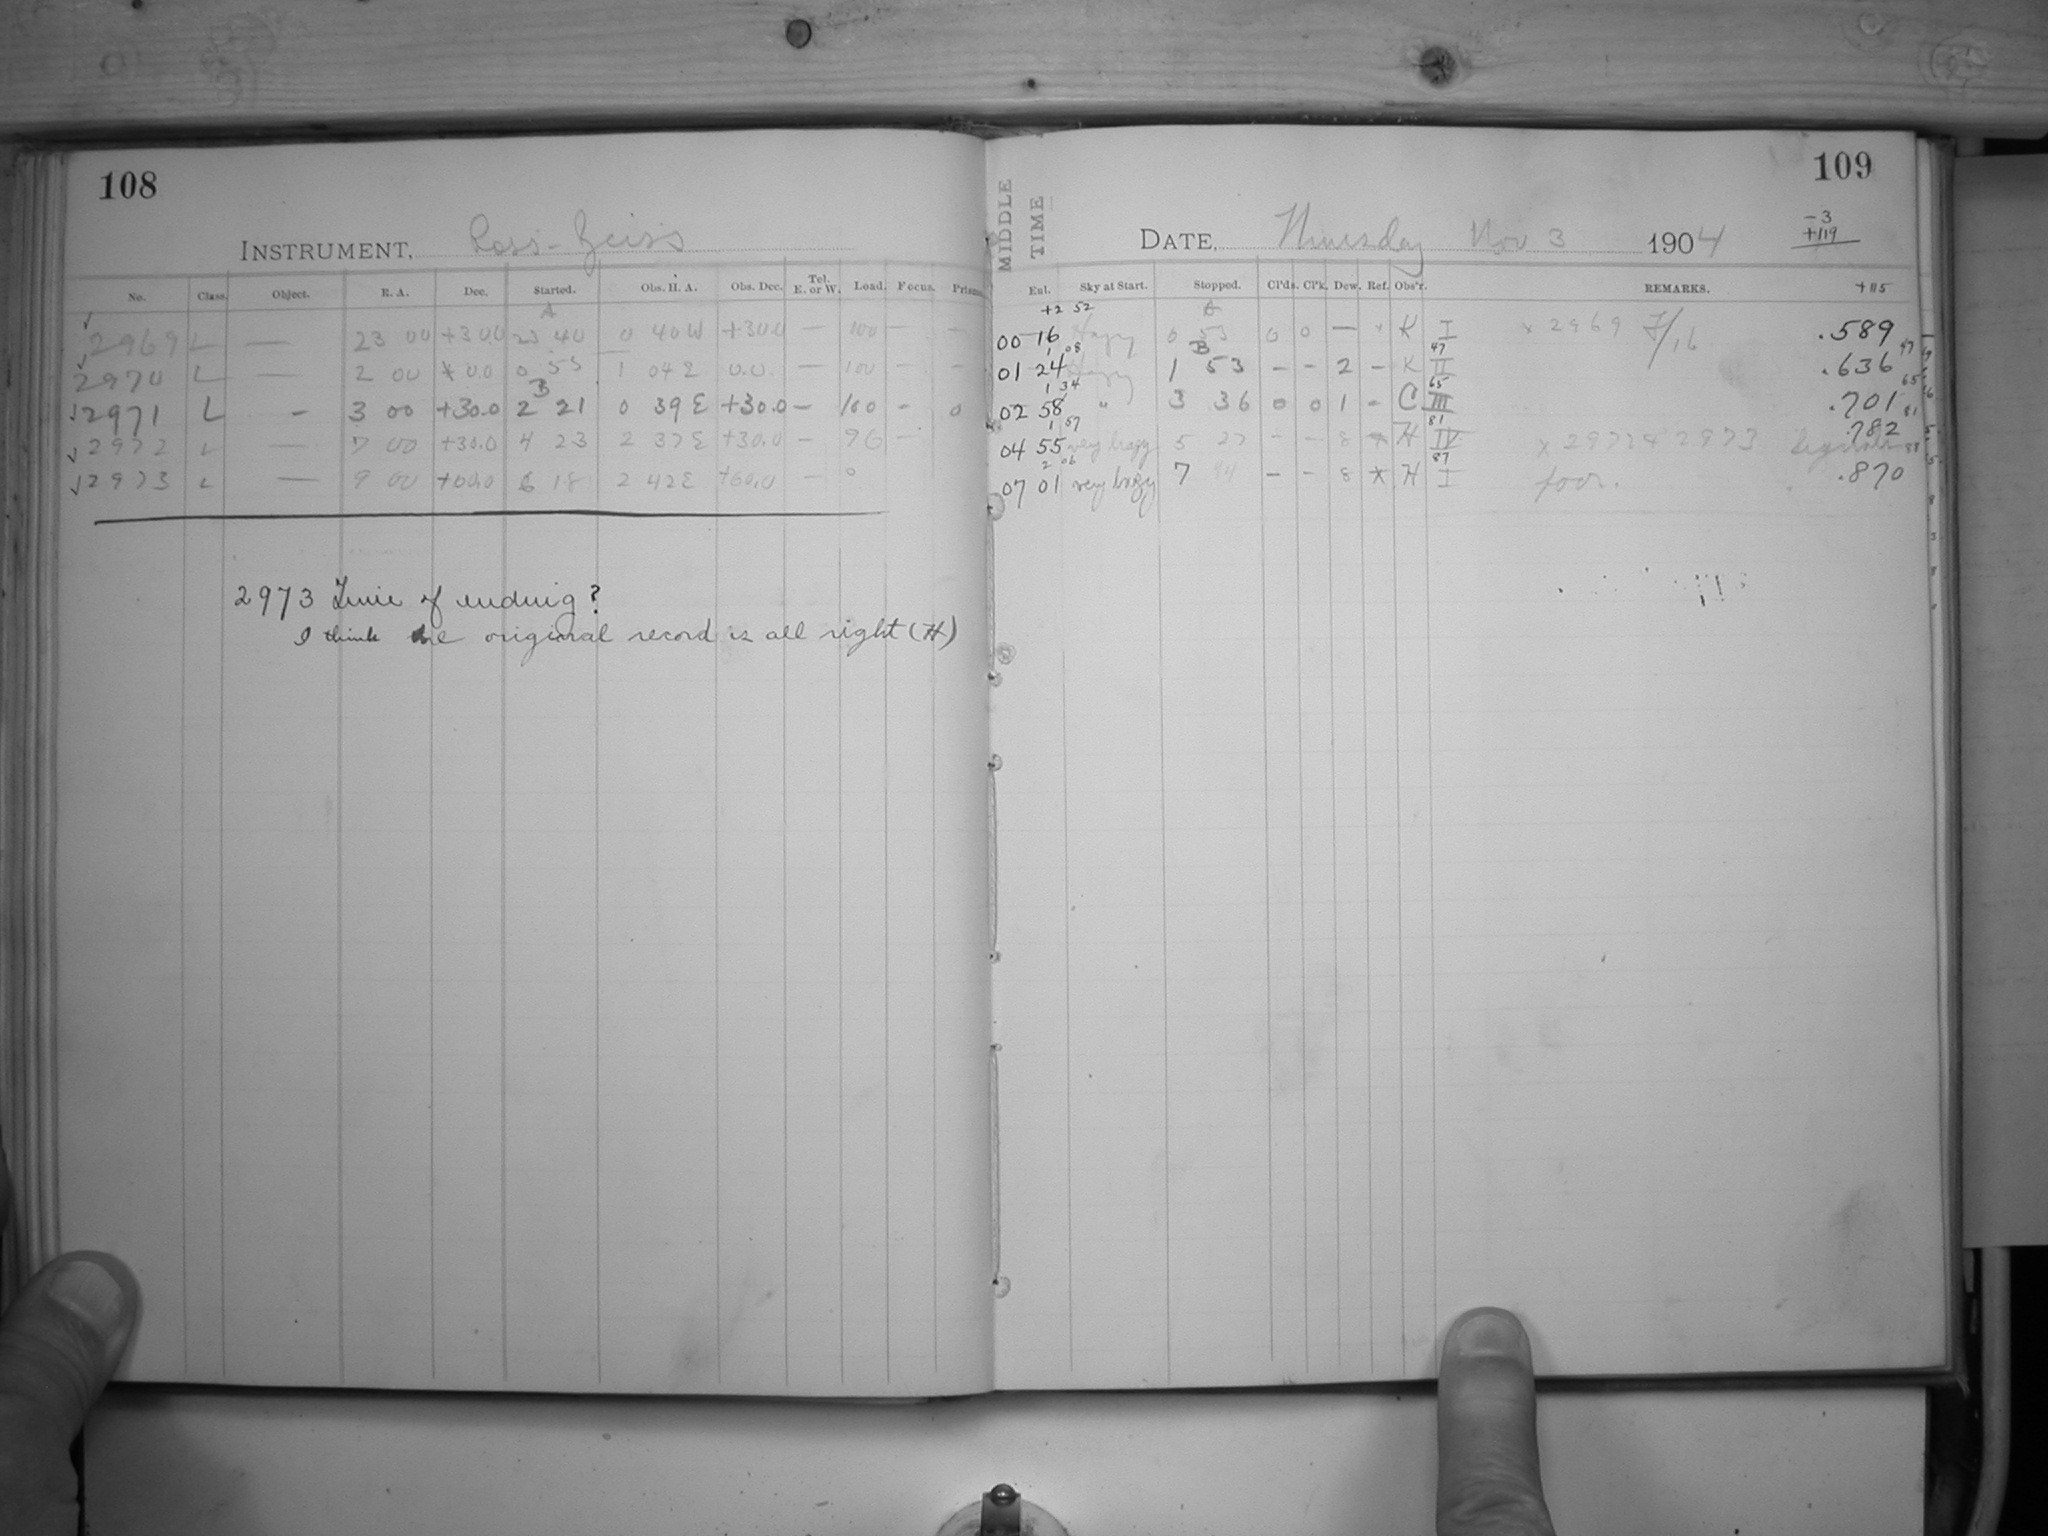 108
INSTRUMENT, Ross-Zeiss
No. Class. Object. R. A. Dec. Started. Obs. H. A. Obs. Dec. Tel. E. or W. Load. Focus. Prism.
A
2969 L — 23 00 +30.0 23 40 0 40 W +30.0 — 100 — —
2970 L — 2 00 0.0 0 55 1 04 E 0.0. — 100 — —
B
2971 L - 3 00 +30.0 2 21 0 39 E +30.0 — 100 - 0
2972 L — 7 00 +30.0 4 23 2 37 E +30.0 — 96 —
2973 L — 9 00 +60.0 6 18 2 42 E +60.0 — 0
2973 Time of ending?
I think the original record is all right (H)
MIDDLE TIME
109
DATE, Thursday Nov 3 1904
-3
+119
Enl. Sky at Start. Stopped. Cl'ds. Cl'k. Dew. Ref. Obs'r. REMARKS. +115
+2 52
00 16 Hazy 0 53 0 0 — K I x 2969 F/16 .589
1 08 B 47 47
01 24 Hazy 1 53 - - 2 - K II .636
1 34 65 65
02 58 " 3 36 0 0 1 - C III .701
1 57 81 81
04 55 very hazy 5 27 - - 8 * H IV x 2972 & 2973 .782
2 06 87 88
07 01 very hazy 7 - - 8 * H I poor. .870